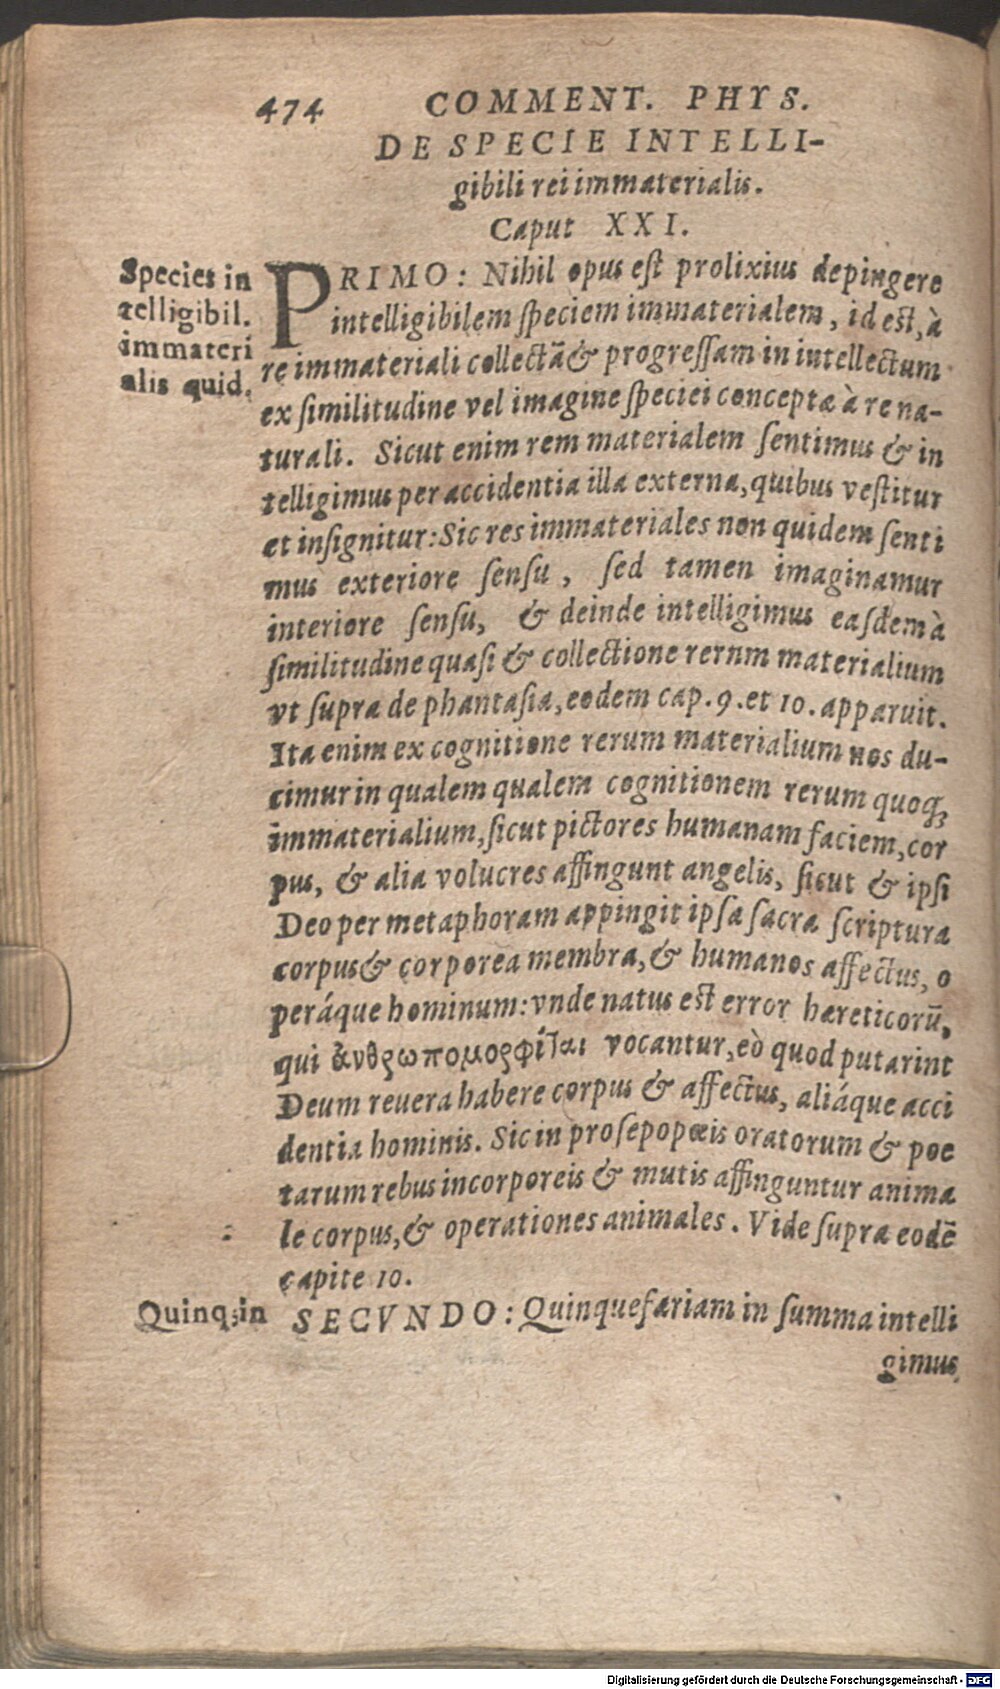 474 COMMENT. PHYS.
DE SPECIE INTELLI-
gibili rei immaterialis.
Caput XXI.
Species in
telligibil.
immateri
alis quid.
PRIMO: Nihil opus est prolixius depingere
intelligibilem speciem immaterialem, id est, à
re immateriali collectã & progressam in intellectum
ex similitudine vel imagine speciei concepta à re na-
turali. Sicut enim rem materialem sentimus & in
telligimus per accidentia illa externa, quibus vestitur
et insignitur: Sic res immateriales non quidem senti
mus exteriore sensu, sed tamen imaginamur
interiore sensu, & deinde intelligimus easdem à
similitudine quasi & collectione rernm materialium
vt supra de phantasia, eodem cap. 9. et 10. apparuit.
Ita enim ex cognitione rerum materialium nos du-
cimur in qualem qualem cognitionem rerum quoq;
immaterialium, sicut pictores humanam faciem, cor
pus, & alia volucres affingunt angelis, sicut & ipsi
Deo per metaphoram appingit ipsa sacra scriptura
corpus & corporea membra, & humanos affectus, o
peráque hominum: vnde natus est error hæreticorũ,
qui ἀνθρωπομορφῖται vocantur, eò quod putarint
Deum reuera habere corpus & affectus, aliáque acci
dentia hominis. Sic in prosepopœis oratorum & poe
tarum rebus incorporeis & mutis affinguntur anima
le corpus, & operationes animales. Vide supra eodẽ
capite 10.
Quinq; in
SECVNDO: Quinquefariam in summa intelli
gimus
Digitalisierung gefördert durch die Deutsche Forschungsgemeinschaft - DFG